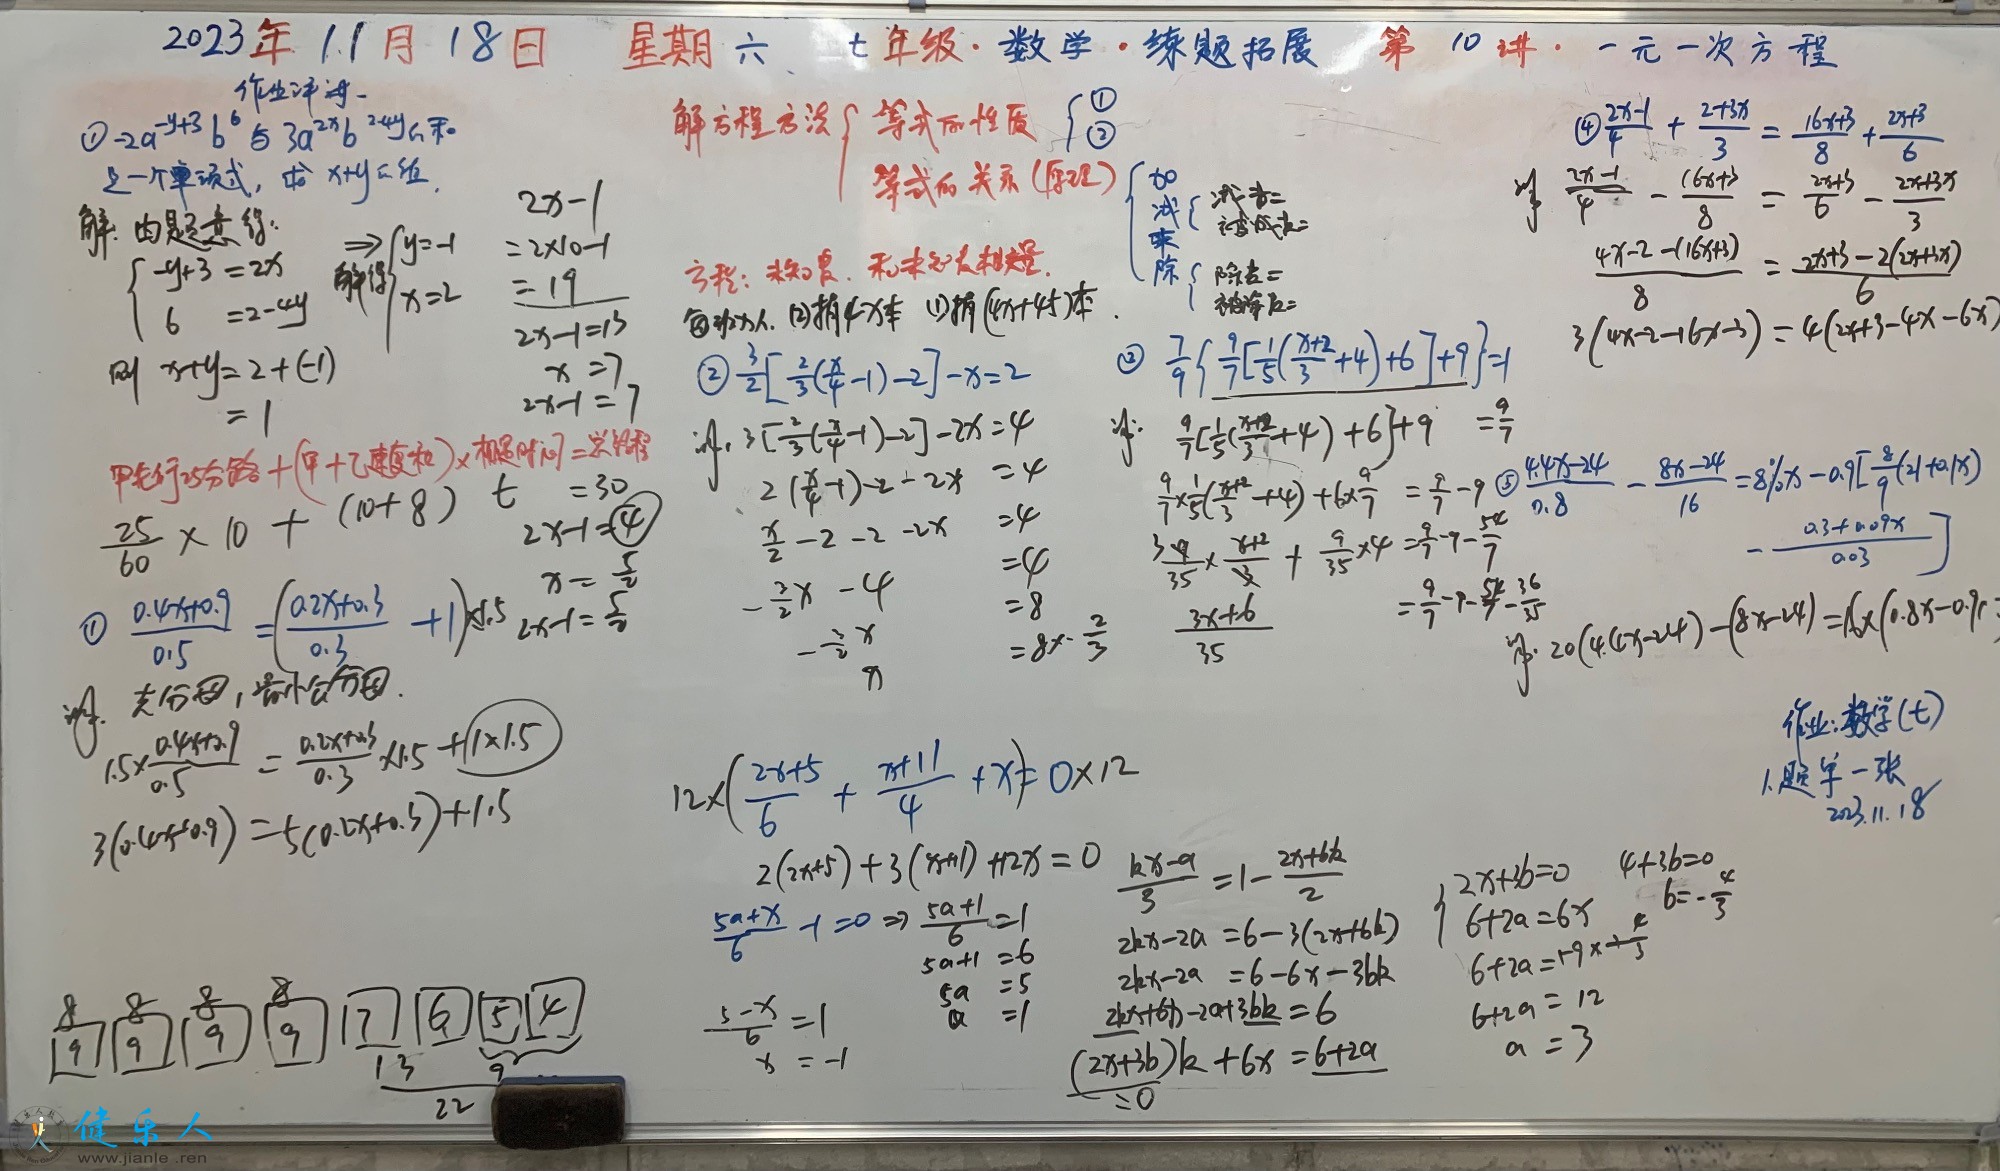 2023年11月18日 星期六 七年级·数学·练题拓展 第10讲·一元一次方程
作业评讲
① -2a^{-y+3}b^6与3a^{2x}b^{2-4y}的和
是一个单项式，求x+y的值.
解: 由题意得:
{ -y+3=2x
6 =2-4y
⇒ 解得 { y=-1
x=2
则 x+y=2+(-1)
=1
2x-1
=2×10-1
=19
2x-1=13
x=7
2x-1=7
2x-1=4
x=5/2
2x-1=5/2
甲先行25分钟路+(甲+乙速度和)×相遇时间=总路程
25/60 × 10 + (10+8) t =30
① (0.4x+0.9)/0.5 =((0.2x+0.3)/0.3 +1)×1.5
解. 去分母，最小公分母.
1.5×(0.4x+0.9)/0.5 = (0.2x+0.3)/0.3 ×1.5 +1×1.5
3(0.4x+0.9) =5(0.2x+0.3)+1.5
8 8 8 8
9 9 9 9 7 6 5 4
13 9
22
解方程方法 { 等式的性质 { ①
②
等式的关系(原理) { 加
减 { 减数=
被减数=
乘
除 { 除数=
被除数=
方程: 未知数. 和未知数相关量.
每班x人. (2)捐4x本 (1)捐(4x+45)本.
② 3/2[2/3(x/4-1)-2]-x=2
解. 3[2/3(x/4-1)-2]-2x=4
2(x/4-1)-2-2x =4
x/2-2-2-2x =4
-3/2x-4 =4
-3/2x =8
x =8×-2/3
③ 7/9{9/7[1/5((x+2)/3+4)+6]+9}=1
解. 9/7[1/5((x+2)/3+4)+6]+9 =9/7
9/7×1/5((x+2)/3+4)+6×9/7 =9/7-9
9/35×(x+2)/3+9/35×4=9/7-9-54/7
=9/7-9-54/7-36/35
(3x+6)/35
12×((2x+5)/6+(x+11)/4+x)=0×12
2(2x+5)+3(x+11)+12x=0
(5a+x)/6-1=0⇒(5a+1)/6=1
5a+1=6
5a =5
a =1
(5-x)/6=1
x=-1
(kx-a)/3=1-(2x+bk)/2
2kx-2a=6-3(2x+bk)
2kx-2a =6-6x-3bk
2kx+6x-2a+3bk=6
(2x+3b)k+6x=6+2a
=0
{ 2x+3b=0
6+2a=6x
4+3b=0
b=-4/3
6+2a=12
a=3
④ (2x-1)/4+(2+3x)/3=(16x+3)/8+(2x+3)/6
解 (2x-1)/4-(16x+3)/8=(2x+3)/6-(2x+3x)/3
(4x-2-(16x+3))/8=(2x+3-2(2x+3x))/6
3(4x-2-16x-3)=4(2x+3-4x-6x)
⑤ (4.4x-24)/0.8-(8x-24)/16=8%x-0.9[8/9(21+0.1x)
-(0.3+0.09x)/0.03]
作业:数学(七)
1.题单一张
2023.11.18
健乐人
www.jianle.ren